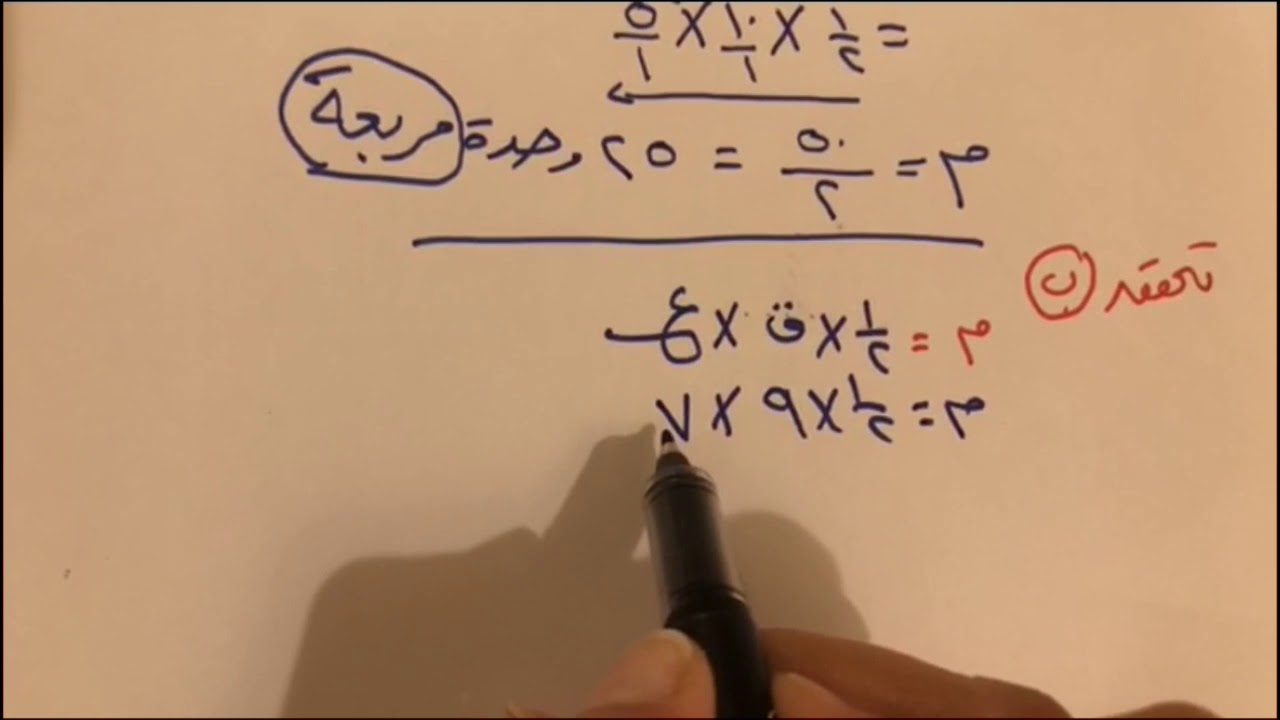 = ١/٢ × ١٠/١ × ٥/١
م = ٥٠/٢ = ٢٥ وحدة مربعة
تحقق ب
م = ١/٢ × ق × ع
م = ١/٢ × ٩ × ٧